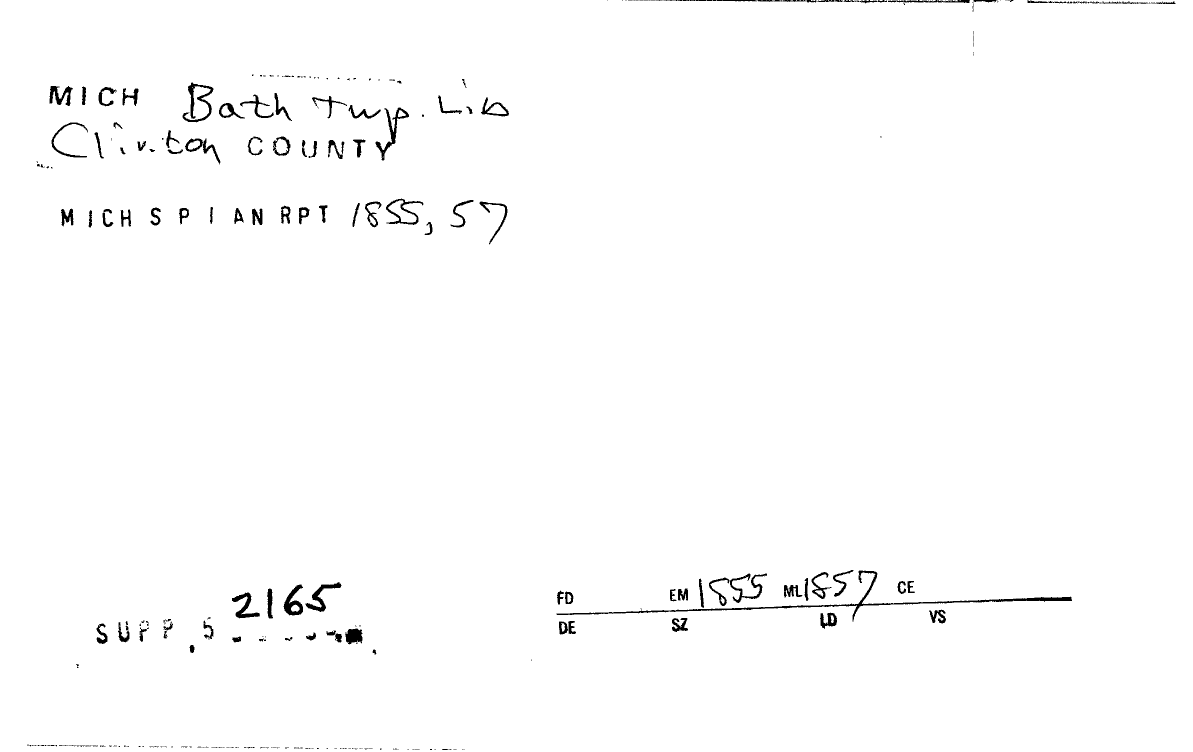 MICH Bath Twp. Lib
Clinton COUNTY
MICH S P I AN RPT 1855, 57
2165
SUPP. 5
FD EM 1855 ML 1857 CE
DE SZ LD VS